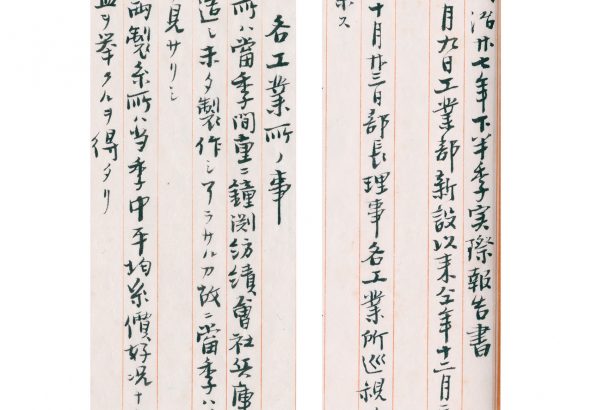 治廿七年下半季実際報告書
月九日工業部新設以来仝年十二月三
十月廿三日部長理事各工業所巡視
ホス
各工業所ノ事
所ハ當季間重ニ鐘渕紡績會社兵庫
造シ未タ製作シアラサルカ故ニ當季ハ
見サリシ
両製糸所ハ当季中平均糸價好況十
益ヲ挙クルヲ得タリ